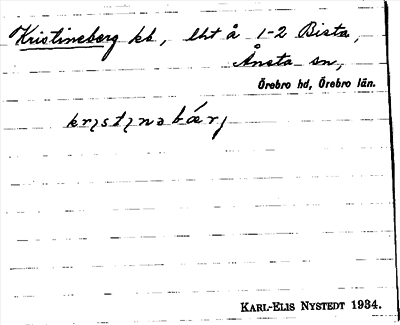 Kristineberg kb, lht å 1-2 Bista,
Ånsta sn,
Örebro hd, Örebro län.
krɪstɪnəbærj
KARL-ELIS NYSTEDT 1934.